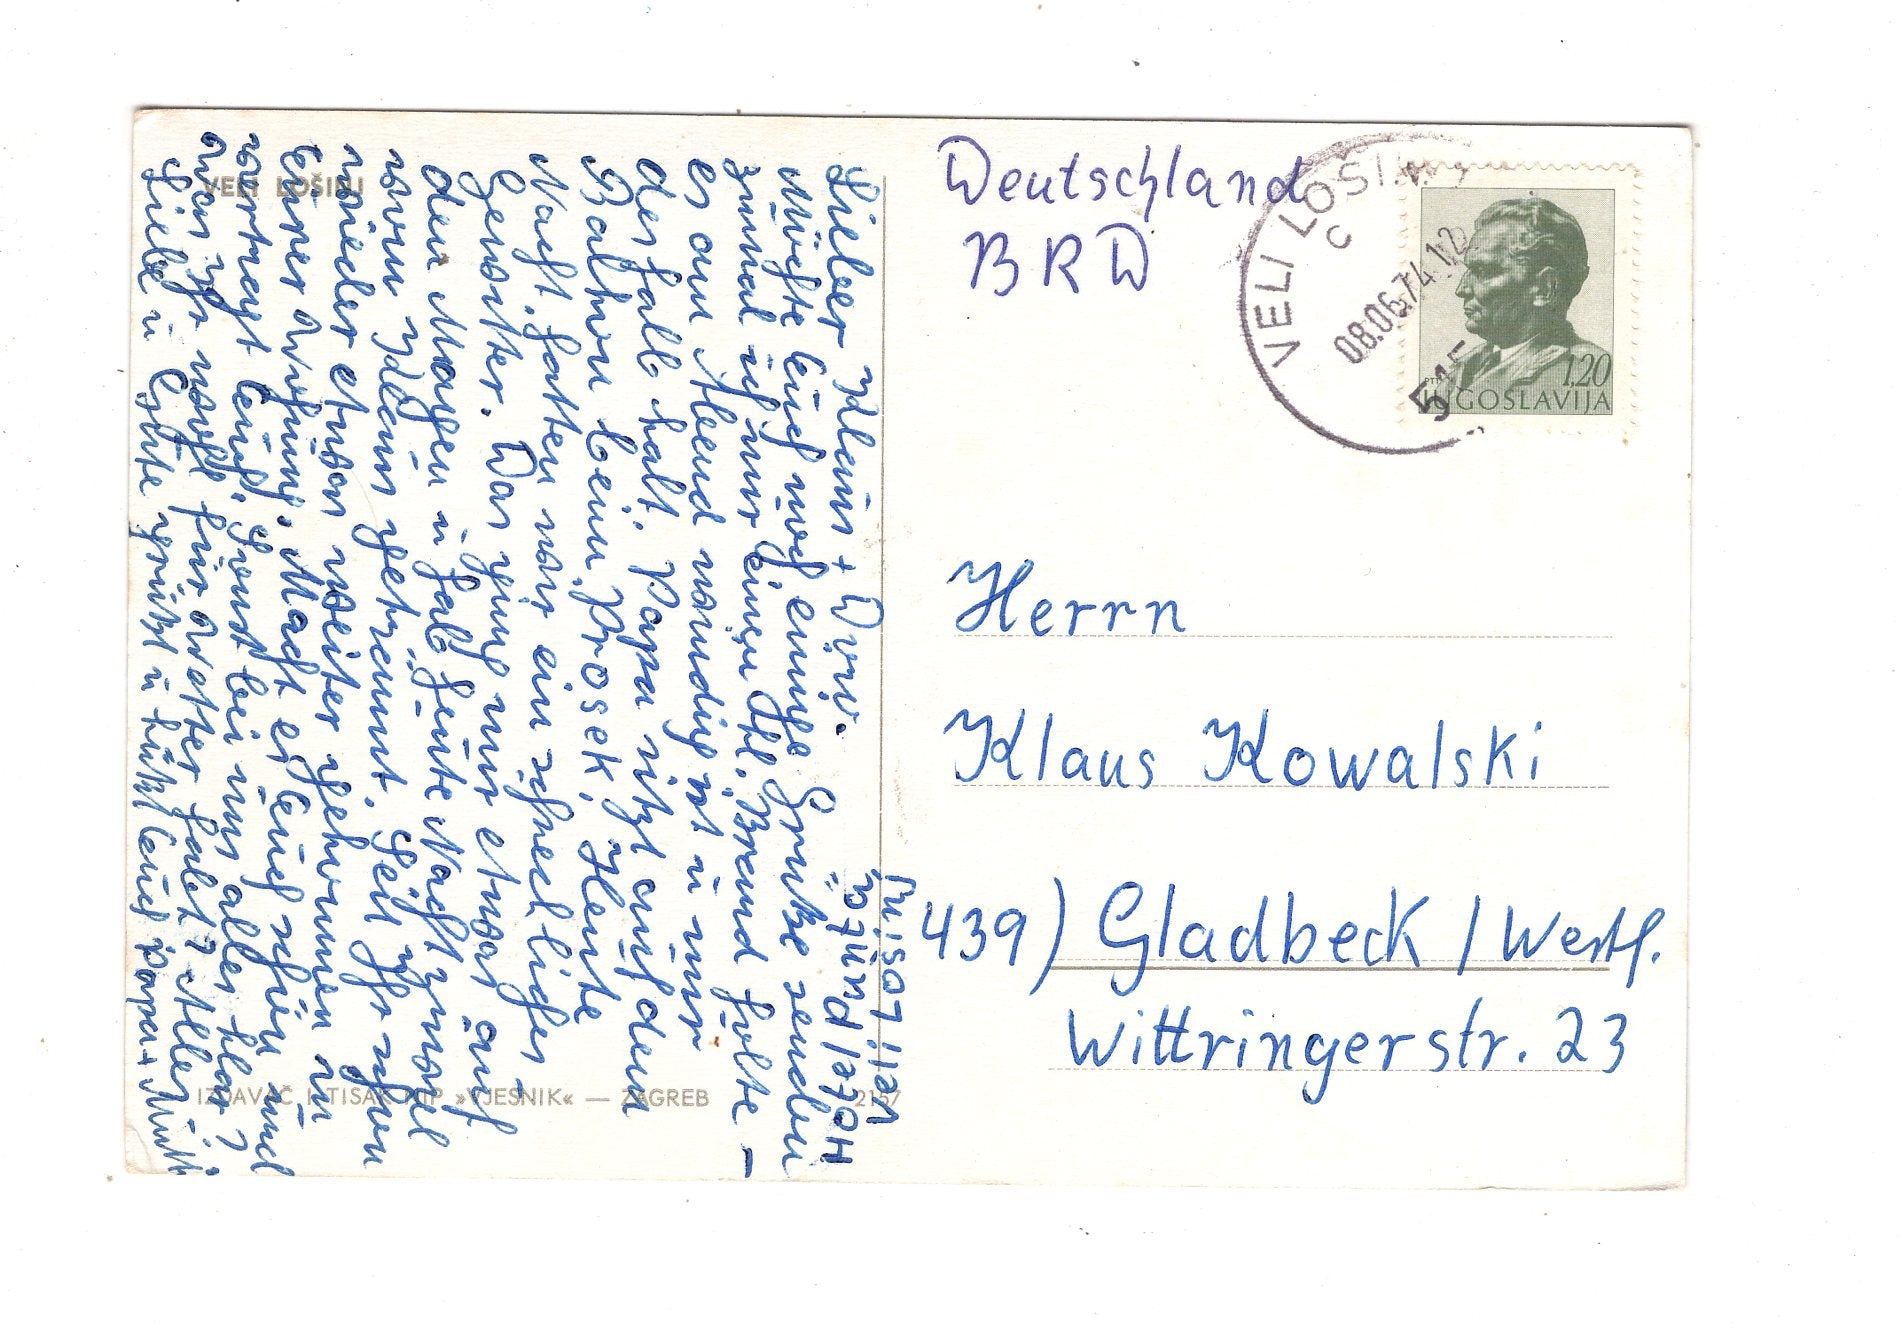 VELI LOŠINJ
Lieber Klaus +
Möchte Euch noch einige Grüße senden
zumal ich mir einen Hl. Brand holte –
es am Abend windig ist u mir
deshalb kalt. Papa sitzt auf dem
Balkon beim Prosek. Heute
Nacht hatten wir ein schreckliches
Gewitter. Das ging mir etwas auf
den Magen u hab heute Nacht zumal
vom Klaus geträumt. Seit Ihr schon
wieder etwas weiter gekommen in
Eurer Wohnung. Macht es Euch schön und
vertragt Euch. Sonst bei uns alles klar?
Was Ihr wohl für Wetter habt? Alles
Liebe u Gute grüßt u küßt Euch Papa + Mutti
Hotel Punta
Veli Lošinj
IZDAVAČ I TISAK NIP »VJESNIK« — ZAGREB
2157
Deutschland
BRD
VELI LOŠINJ
C
08.06.74 12
PTT
1,20
JUGOSLAVIJA
Herrn
Klaus Kowalski
439) Gladbeck / Westf.
Wittringerstr. 23